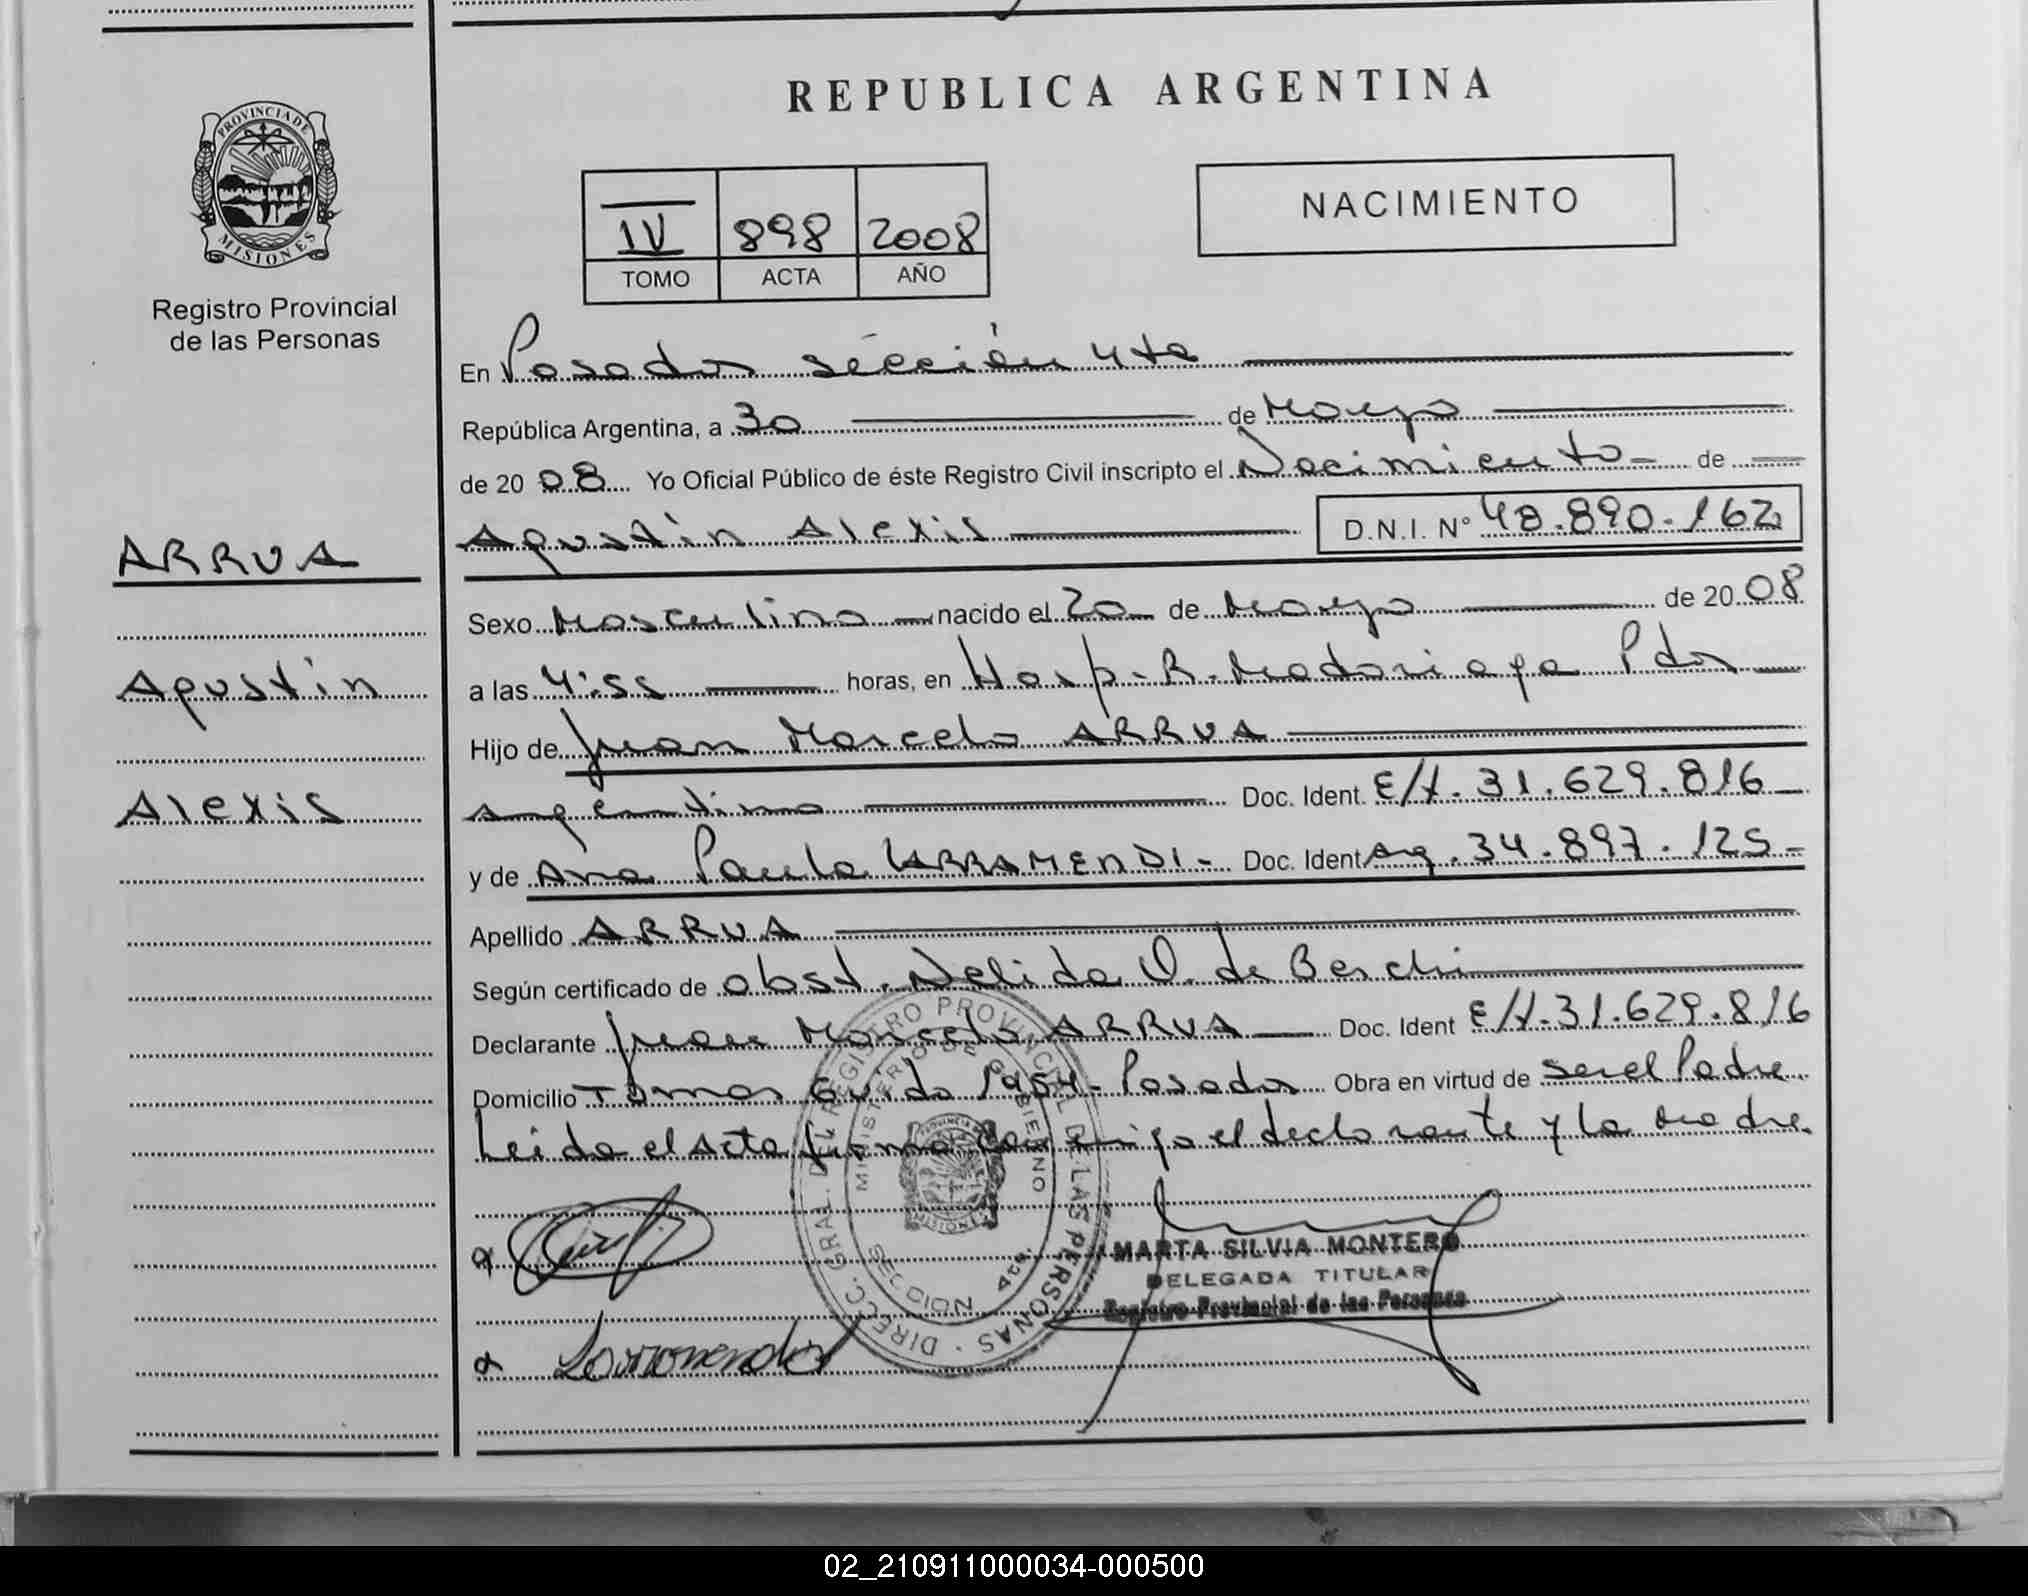 REPUBLICA ARGENTINA
PROVINCIA DE
MISIONES
Registro Provincial
de las Personas
IV 898 2008
TOMO ACTA AÑO
NACIMIENTO
En Posadas sección 4ta
República Argentina, a 30 de Mayo
de 20 08 Yo Oficial Público de éste Registro Civil inscripto el Nacimiento de
Agustín Alexis D.N.I. N° 48.890.162
ARRUA
Agustín
Alexis
Sexo Masculino nacido el 20 de Mayo de 20 08
a las 4:55 horas, en Hosp. R. Madariaga Pdas
Hijo de Juan Marcelo ARRUA
argentino Doc. Ident. E/t. 31.629.816
y de Ana Paula LARRAMENDI Doc. Ident Arg. 34.897.125
Apellido ARRUA
Según certificado de obst. Nelida O. de Berchi
Declarante Juan Marcelo ARRUA Doc. Ident E/t. 31.629.816
Domicilio Tomas Guido Posadas Obra en virtud de ser el Padre
Leida el acta firma conmigo el declarante y la madre.
DIRECC. GRAL. DEL REGISTRO PROVINCIAL DE LAS PERSONAS
MINISTERIO DE GOBIERNO
PROVINCIA DE
MISIONES
SECCION 4ta.
MARTA SILVIA MONTERO
DELEGADA TITULAR
Registro Provincial de las Personas
02_210911000034-000500